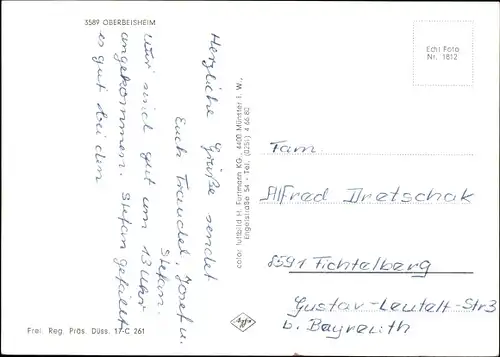 3589 OBERBEISHEIM
Herzliche Grüße sendet
Euch Traudel, Josef u.
Stefan.
Wir sind gut um 13 Uhr
angekommen. Stefan gefällt
es gut bei den
color luftbild H. Fortmann KG., 4400 Münster i. W.,
Engelstraße 54 - Tel. (0251) 4 66 80
Echt Foto
Nr. 1812
Fam.
Alfred Dretschak
8591 Fichtelberg
Gustav-Leutelt-Str3
b. Bayreuth
Frei. Reg. Präs. Düss. 17 C 261